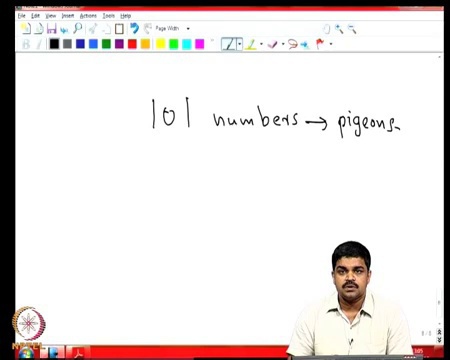 File Edit View Insert Actions Tools Help
Page Width
101 numbers → pigeons.
NPTEL